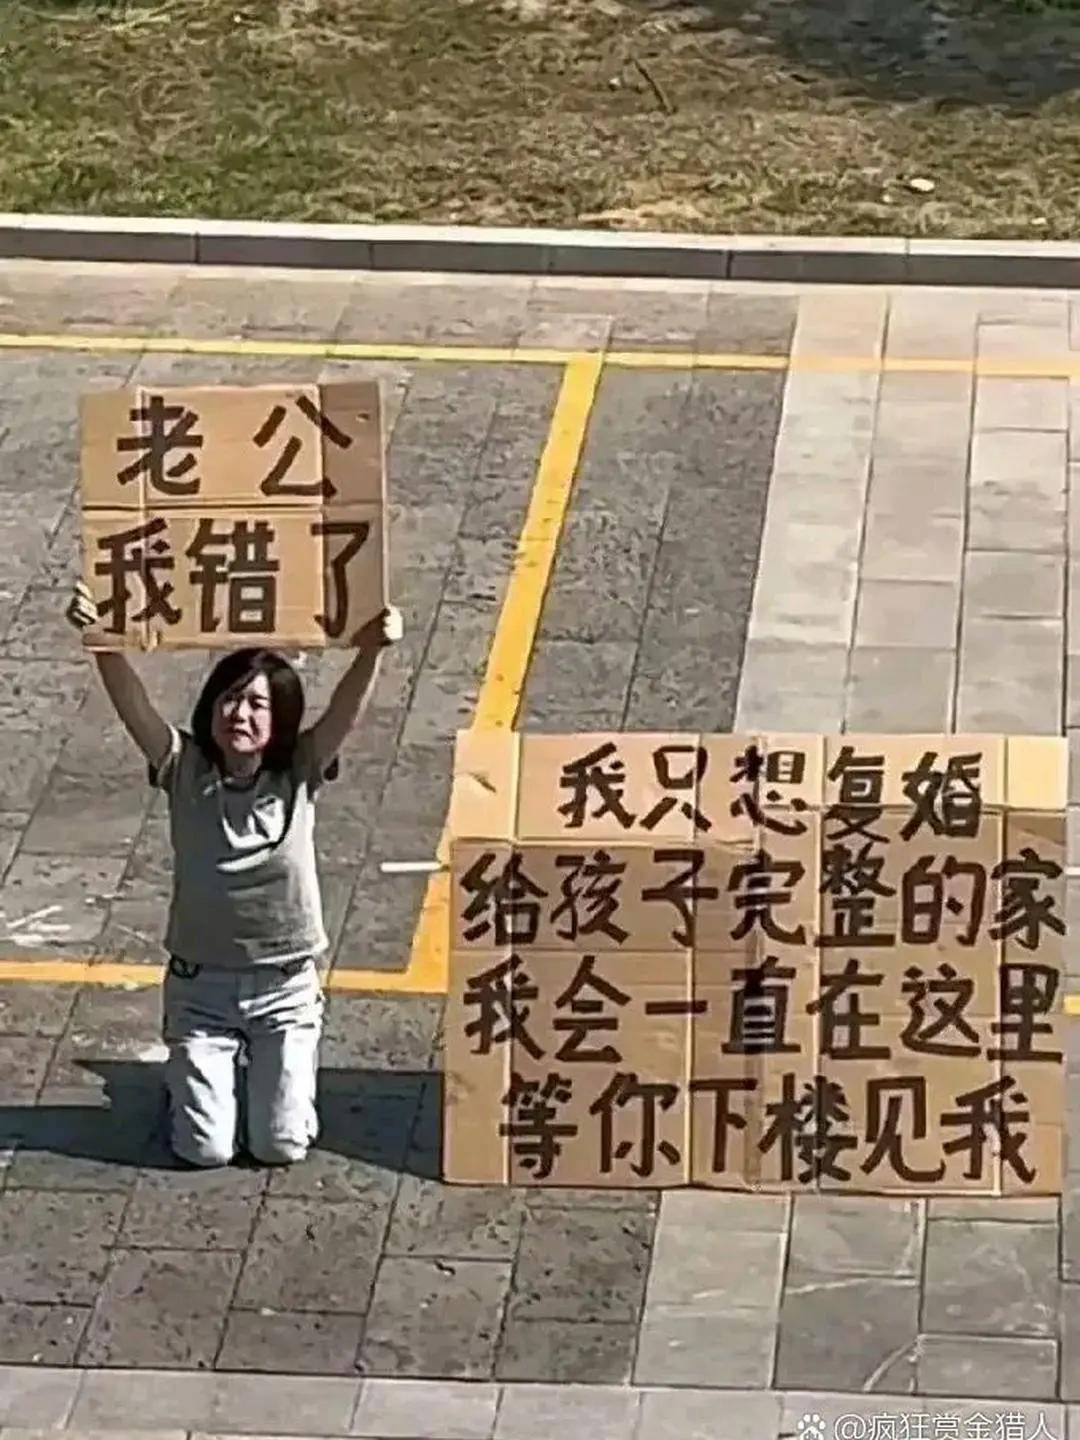 老公
我错了
我只想复婚
给孩子完整的家
我会一直在这里
等你下楼见我
@疯狂赏金猎人